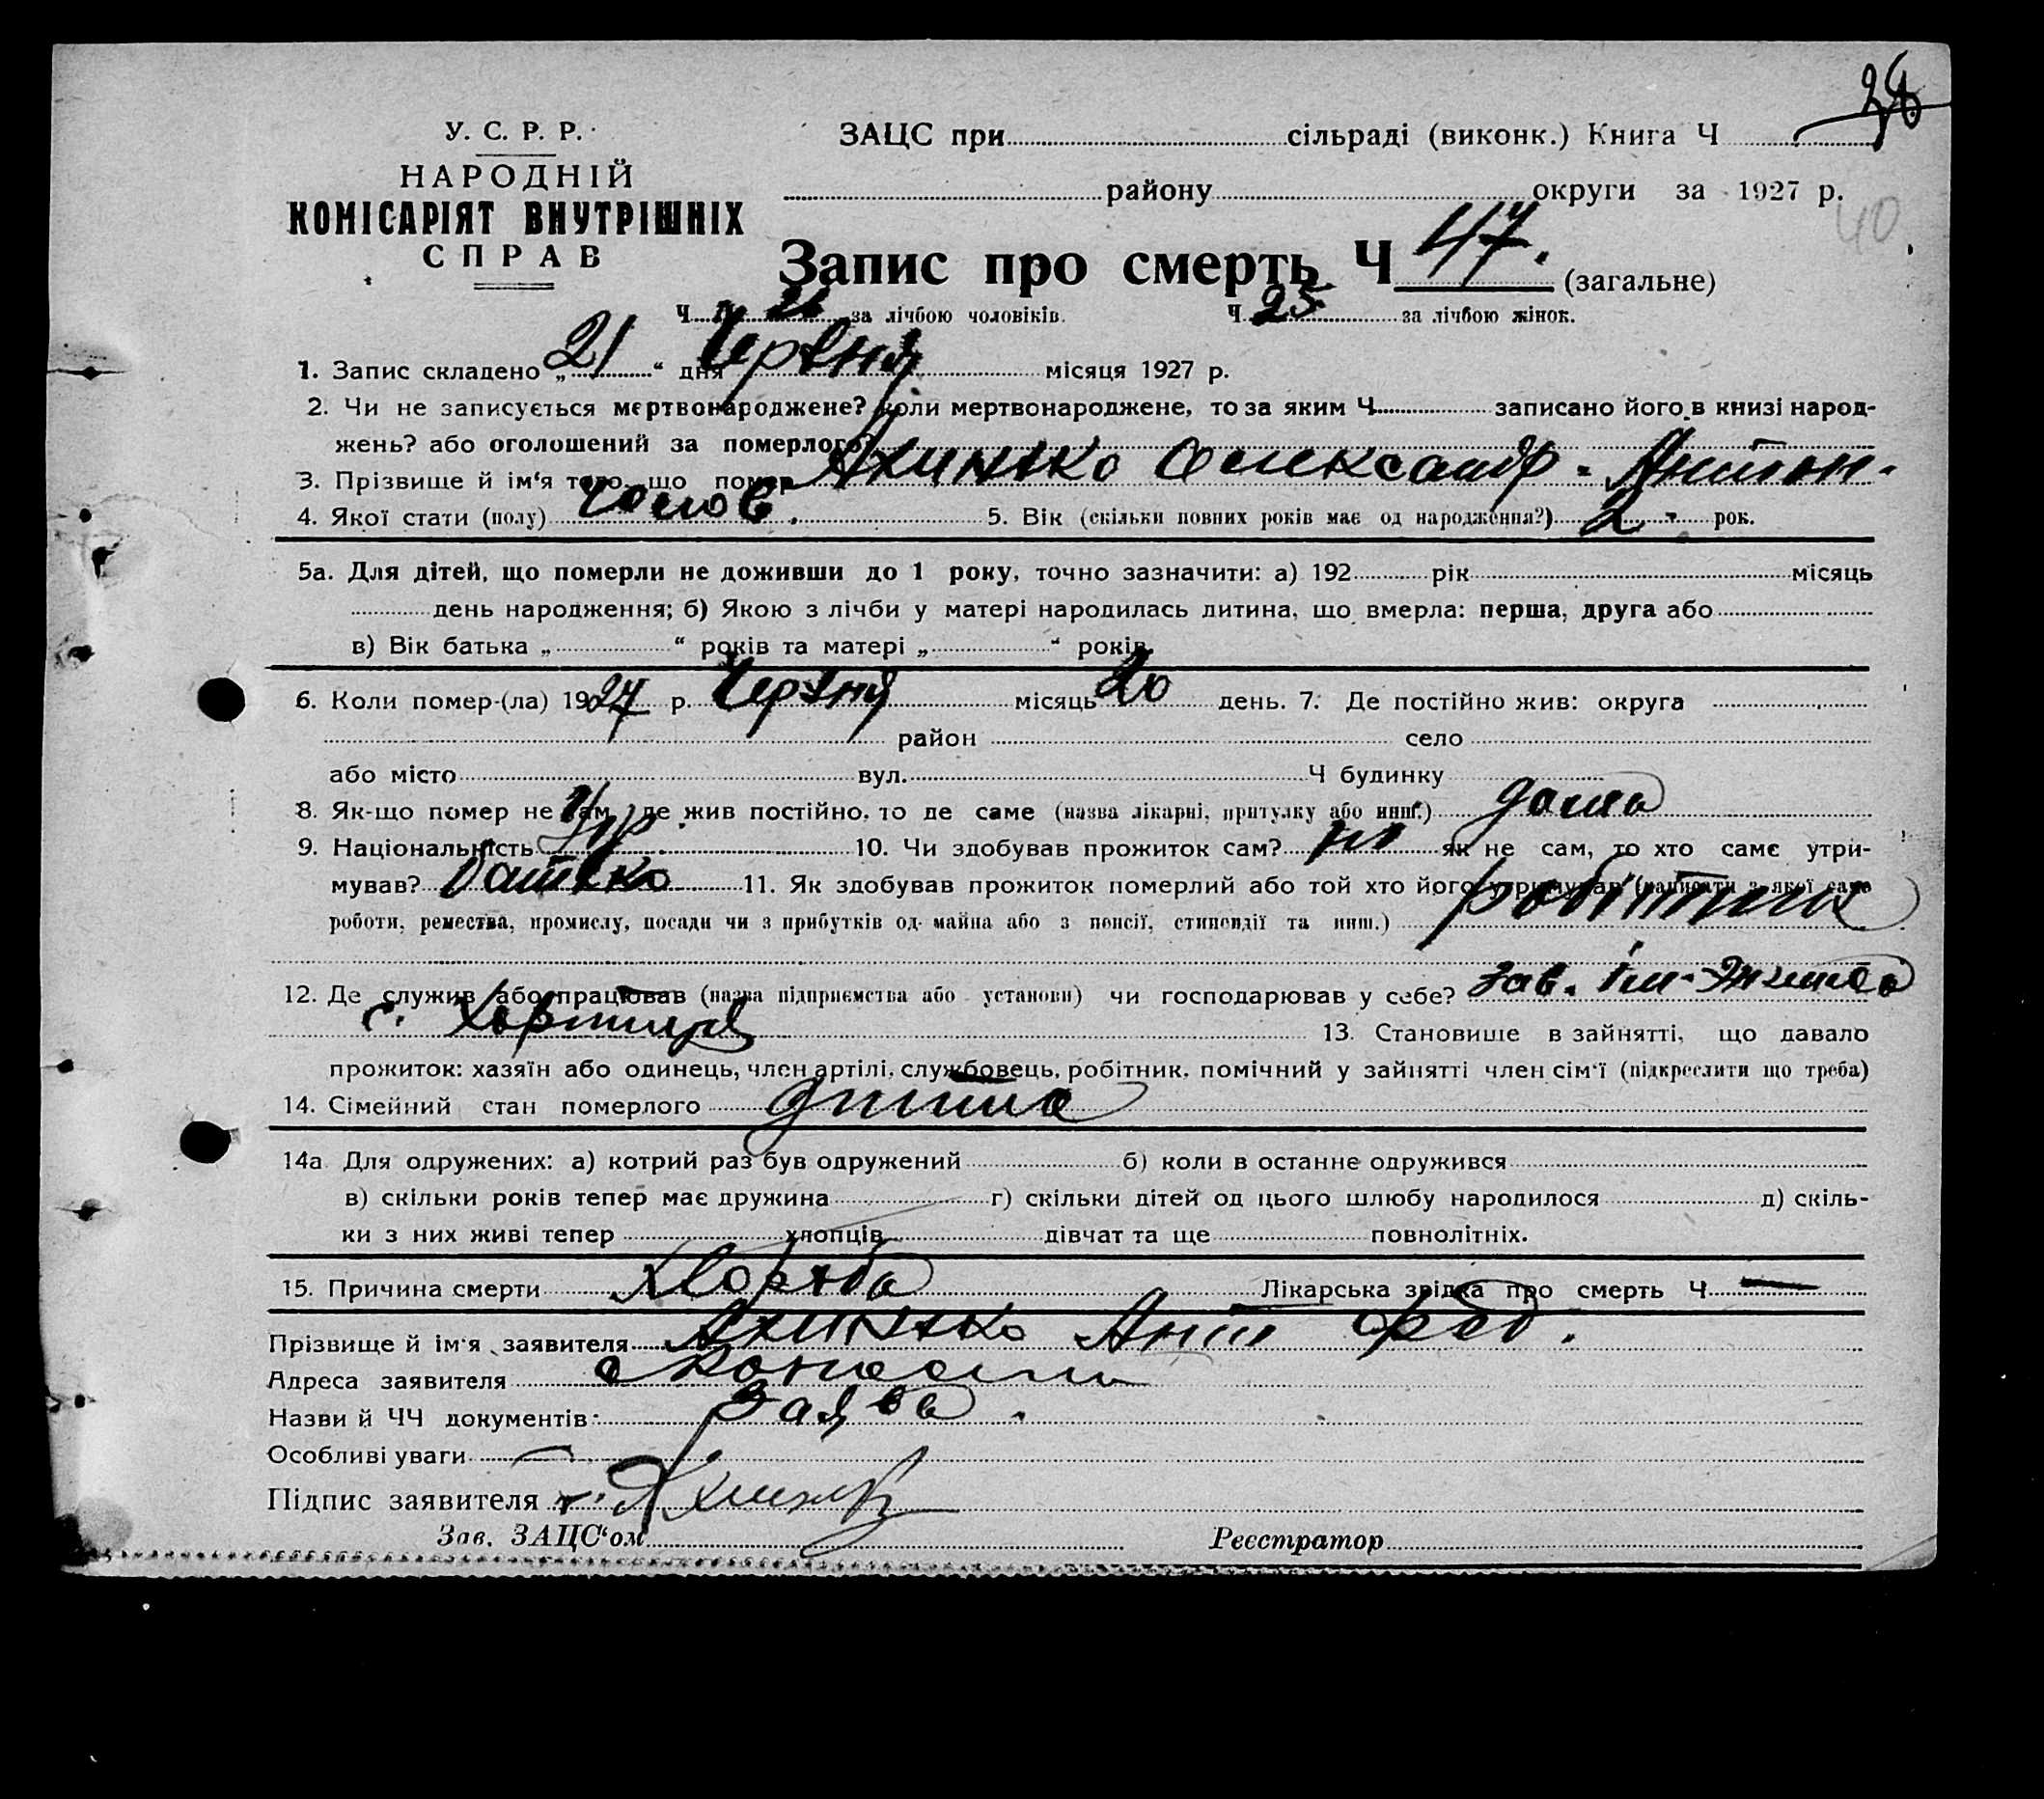 38
У. С. Р. Р.
НАРОДНІЙ
КОМІСАРІЯТ ВНУТРІШНІХ
СПРАВ
ЗАЦС при сільраді (виконк.) Книга Ч
району округи за 1927 р.
40
Запис про смерть Ч 47. (загальне)
Ч за лічбою чоловіків. Ч 25 за лічбою жінок.
1. Запис складено „ 21 “ дня Червня місяця 1927 р.
2. Чи не записується мертвонароджене? Коли мертвонароджене, то за яким Ч записано його в книзі народ-
жень? або оголошений за померлого?
3. Прізвище й ім‘я того, що помер Ахинько Олександр Антон.
4. Якої стати (полу) чолов. 5. Вік (скільки повних років має од народження?) 2 рок.
5а. Для дітей, що померли не доживши до 1 року, точно зазначити: а) 192 рік місяць
день народження; б) Якою з лічби у матері народилась дитина, що вмерла: перша, друга або
в) Вік батька „ “ років та матері „ “ років.
6. Коли помер-(ла) 1927 р. Червня місяць 20 день. 7. Де постійно жив: округа
район село
або місто вул. Ч будинку
8. Як-що помер не там, де жив постійно, то де саме (назва лікарні, притулку або инш.) дома
9. Національність Укр. 10. Чи здобував прожиток сам? ні як не сам, то хто саме утри-
мував? батько 11. Як здобував прожиток померлий або той хто його утримував (написати з якої саме
роботи, ремества, промислу, посади чи з прибутків од майна або з пенсії, стипендії та инш.) робітник
12. Де служив або працював (назва підприємства або установи) чи господарював у себе? Зав. ім.
с. Хортиця 13. Становище в зайнятті, що давало
прожиток: хазяїн або одинець, член артілі, службовець, робітник, помічний у зайнятті член сім‘ї (підкреслити що треба)
14. Сімейний стан померлого дитина
14а Для одружених: а) котрий раз був одружений б) коли в останнє одружився
в) скільки років тепер має дружина г) скільки дітей од цього шлюбу народилося д) скіль-
ки з них живі тепер хлопців дівчат та ще повнолітніх.
15. Причина смерти хвороба Лікарська зрідка про смерть Ч —
Прізвище й ім‘я заявителя Ахинько Ант Фед.
Адреса заявителя
Назви й ЧЧ документів Заява.
Особливі уваги —
Підпис заявителя
Зав. ЗАЦС‘ом Реєстратор